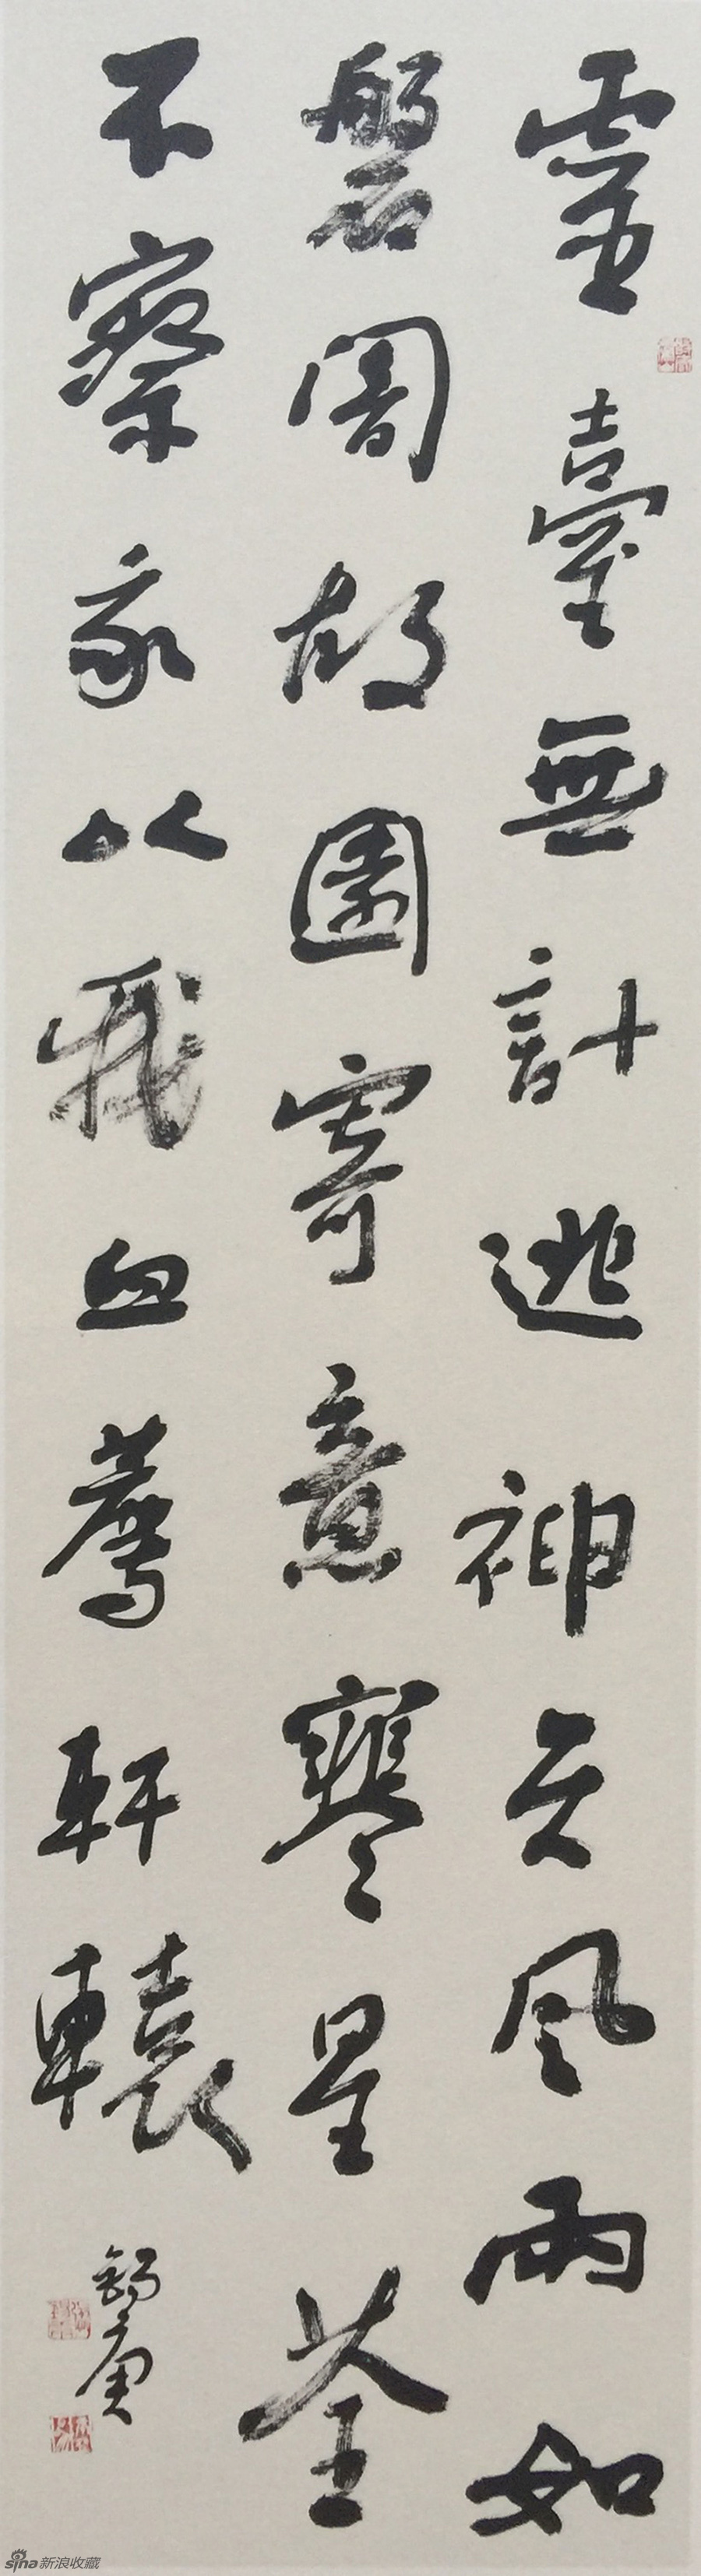 靈臺無計逃神矢風雨如
磐闇故園寄意寒星荃
不察我以我血薦軒轅
sina新浪收藏